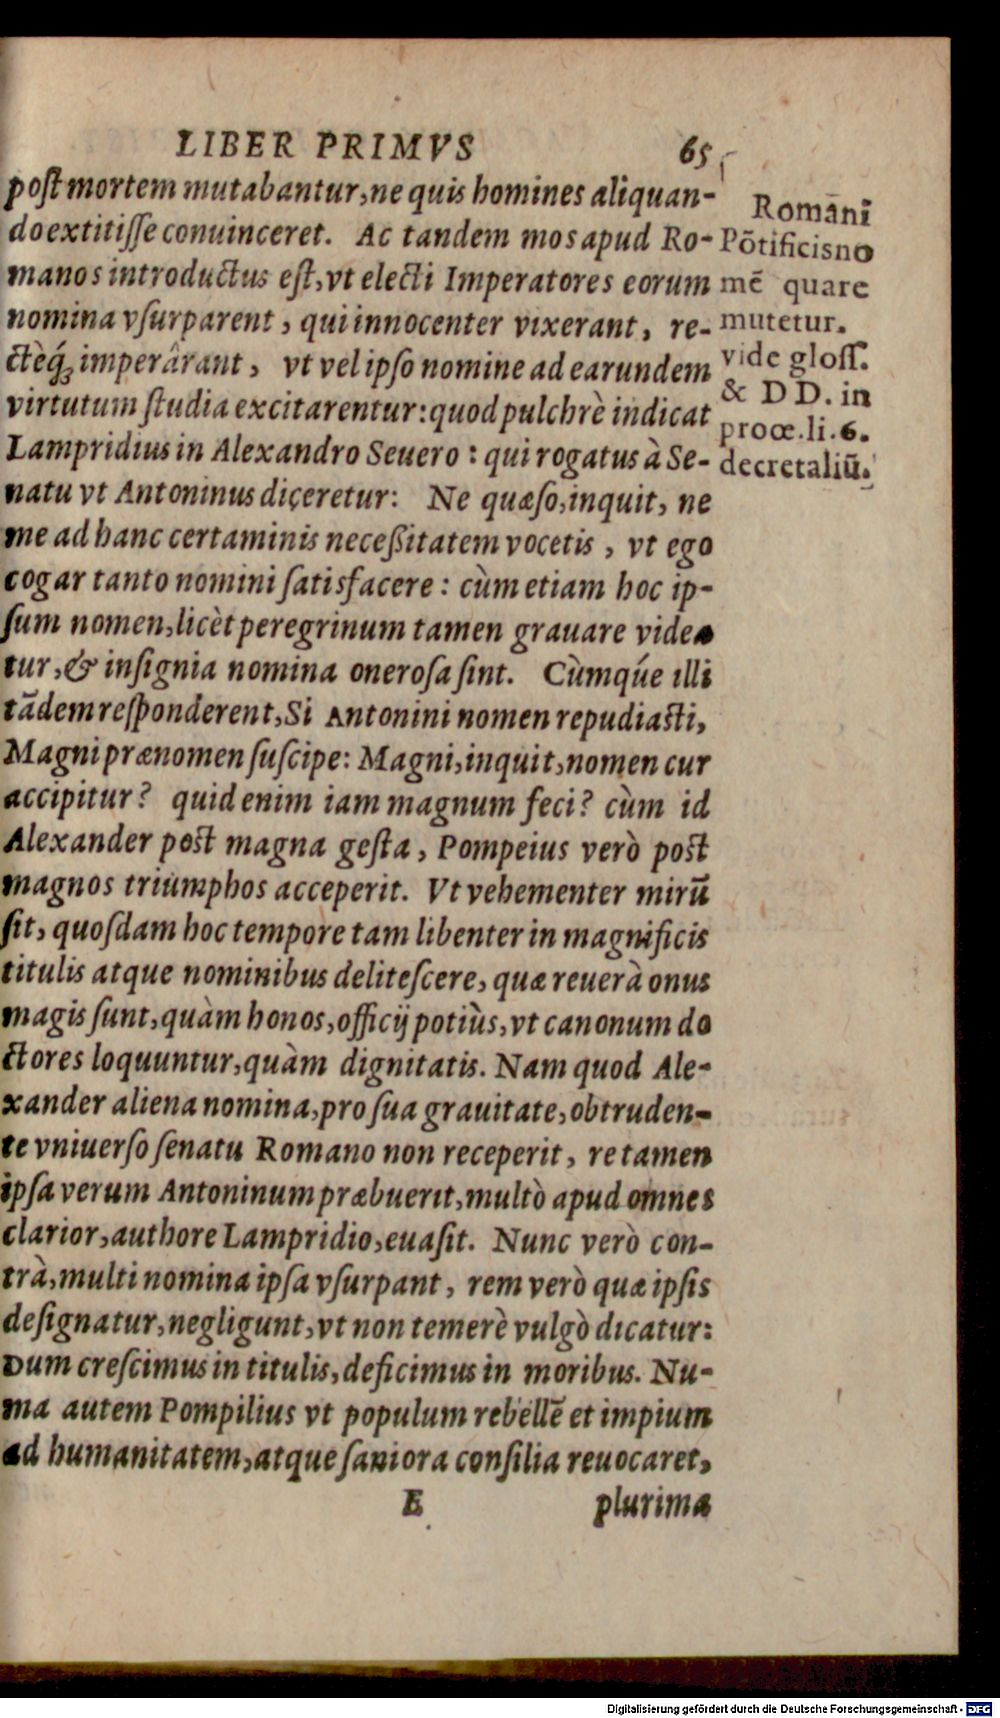 LIBER PRIMVS 65
post mortem mutabantur, ne quis homines aliquan-
do extitisse conuinceret. Ac tandem mos apud Ro-
manos introductus est, vt electi Imperatores eorum
nomina vsurparent, qui innocenter vixerant, re-
ctèq́; imperârant, vt vel ipso nomine ad earundem
virtutum studia excitarentur: quod pulchrè indicat
Lampridius in Alexandro Seuero: qui rogatus à Se-
natu vt Antoninus diceretur: Ne quæso, inquit, ne
me ad hanc certaminis necessitatem vocetis, vt ego
cogar tanto nomini satisfacere: cùm etiam hoc ip-
sum nomen, licèt peregrinum tamen grauare videa
tur, & insignia nomina onerosa sint. Cùmqúe illi
tādem responderent, Si Antonini nomen repudiasti,
Magni prænomen suscipe: Magni, inquit, nomen cur
accipitur? quid enim iam magnum feci? cùm id
Alexander post magna gesta, Pompeius verò post
magnos triumphos acceperit. Vt vehementer mirū
sit, quosdam hoc tempore tam libenter in magnificis
titulis atque nominibus delitescere, quæ reuerà onus
magis sunt, quàm honos, officij potiùs, vt canonum do
ctores loquuntur, quàm dignitatis. Nam quod Ale-
xander aliena nomina, pro sua grauitate, obtruden-
te vniuerso senatu Romano non receperit, re tamen
ipsa verum Antoninum præbuerit, multò apud omnes
clarior, authore Lampridio, euasit. Nunc verò con-
trà, multi nomina ipsa vsurpant, rem verò quæ ipsis
designatur, negligunt, vt non temerè vulgò dicatur:
Dum crescimus in titulis, deficimus in moribus. Nu-
ma autem Pompilius vt populum rebellē et impium
ad humanitatem, atque saniora consilia reuocaret,
E plurima
Romāni
Pōtificis no
mē quare
mutetur.
vide gloss.
& DD. in
proœ. li. 6.
decretaliū.
Digitalisierung gefördert durch die Deutsche Forschungsgemeinschaft - DFG